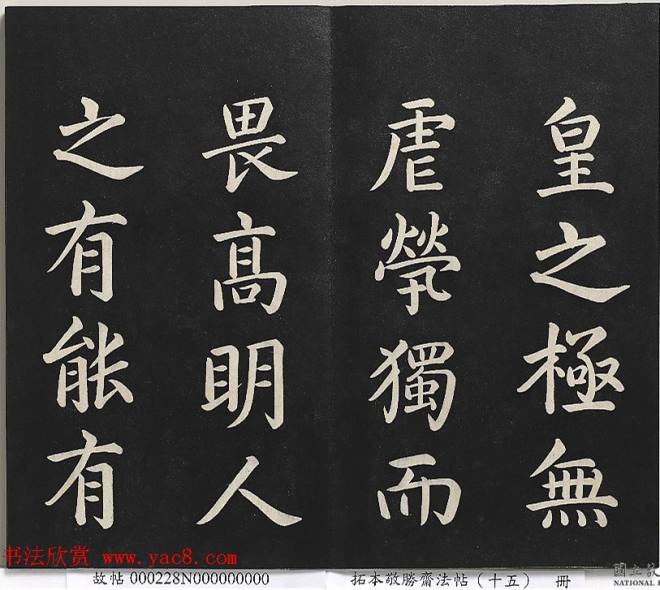 皇之極無
虐煢獨而
畏髙眀人
之有能有
书法欣赏 www.yac8.com
故帖 000228N000000000
拓本敬勝齋法帖(十五) 冊
國立
NATIONAL